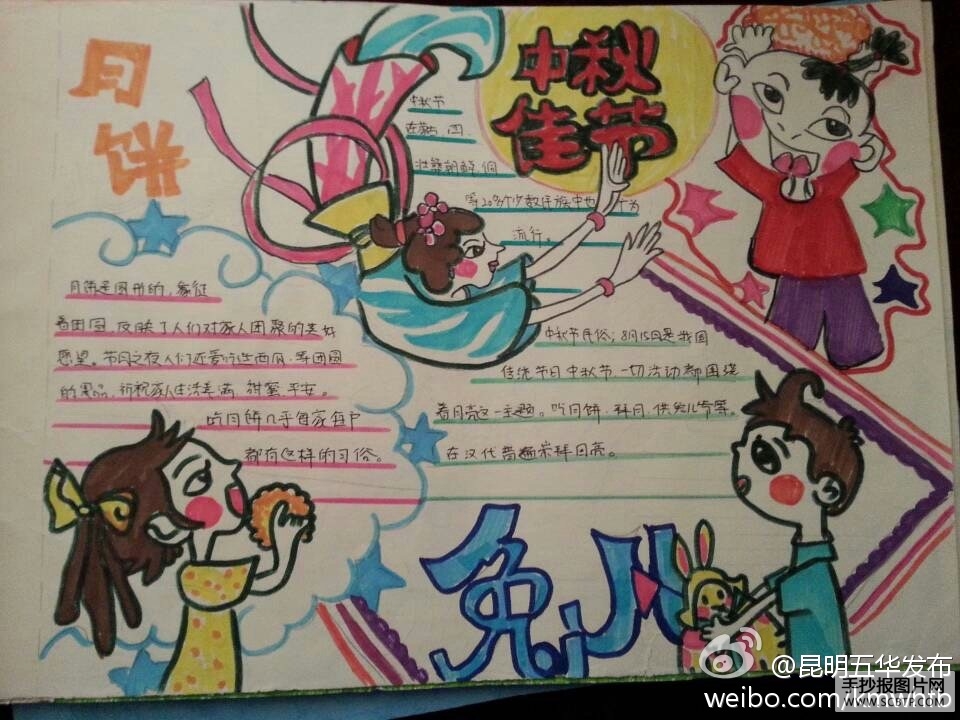 月饼
中秋
佳节
中秋节
在
壮
朝鲜,侗
等20多个少数民族中也十为
流行。
月饼是圆形的,象征
着团圆,反映了人们对家人团聚的美好
愿望。节日之夜人们还爱吃些西瓜,等团圆
的果品,祈祝家人生活美满、甜蜜、平安。
吃月饼几乎每家每户
都有这样的习俗。
中秋节民俗;8月15日是我国
传统节日中秋节,一切活动都围绕
着月亮这一主题。吃月饼,拜月,供兔儿爷等。
在汉代普遍崇拜月亮。
兔儿
@昆明五华发布
weibo.com/kmwhfb
手抄报图片网